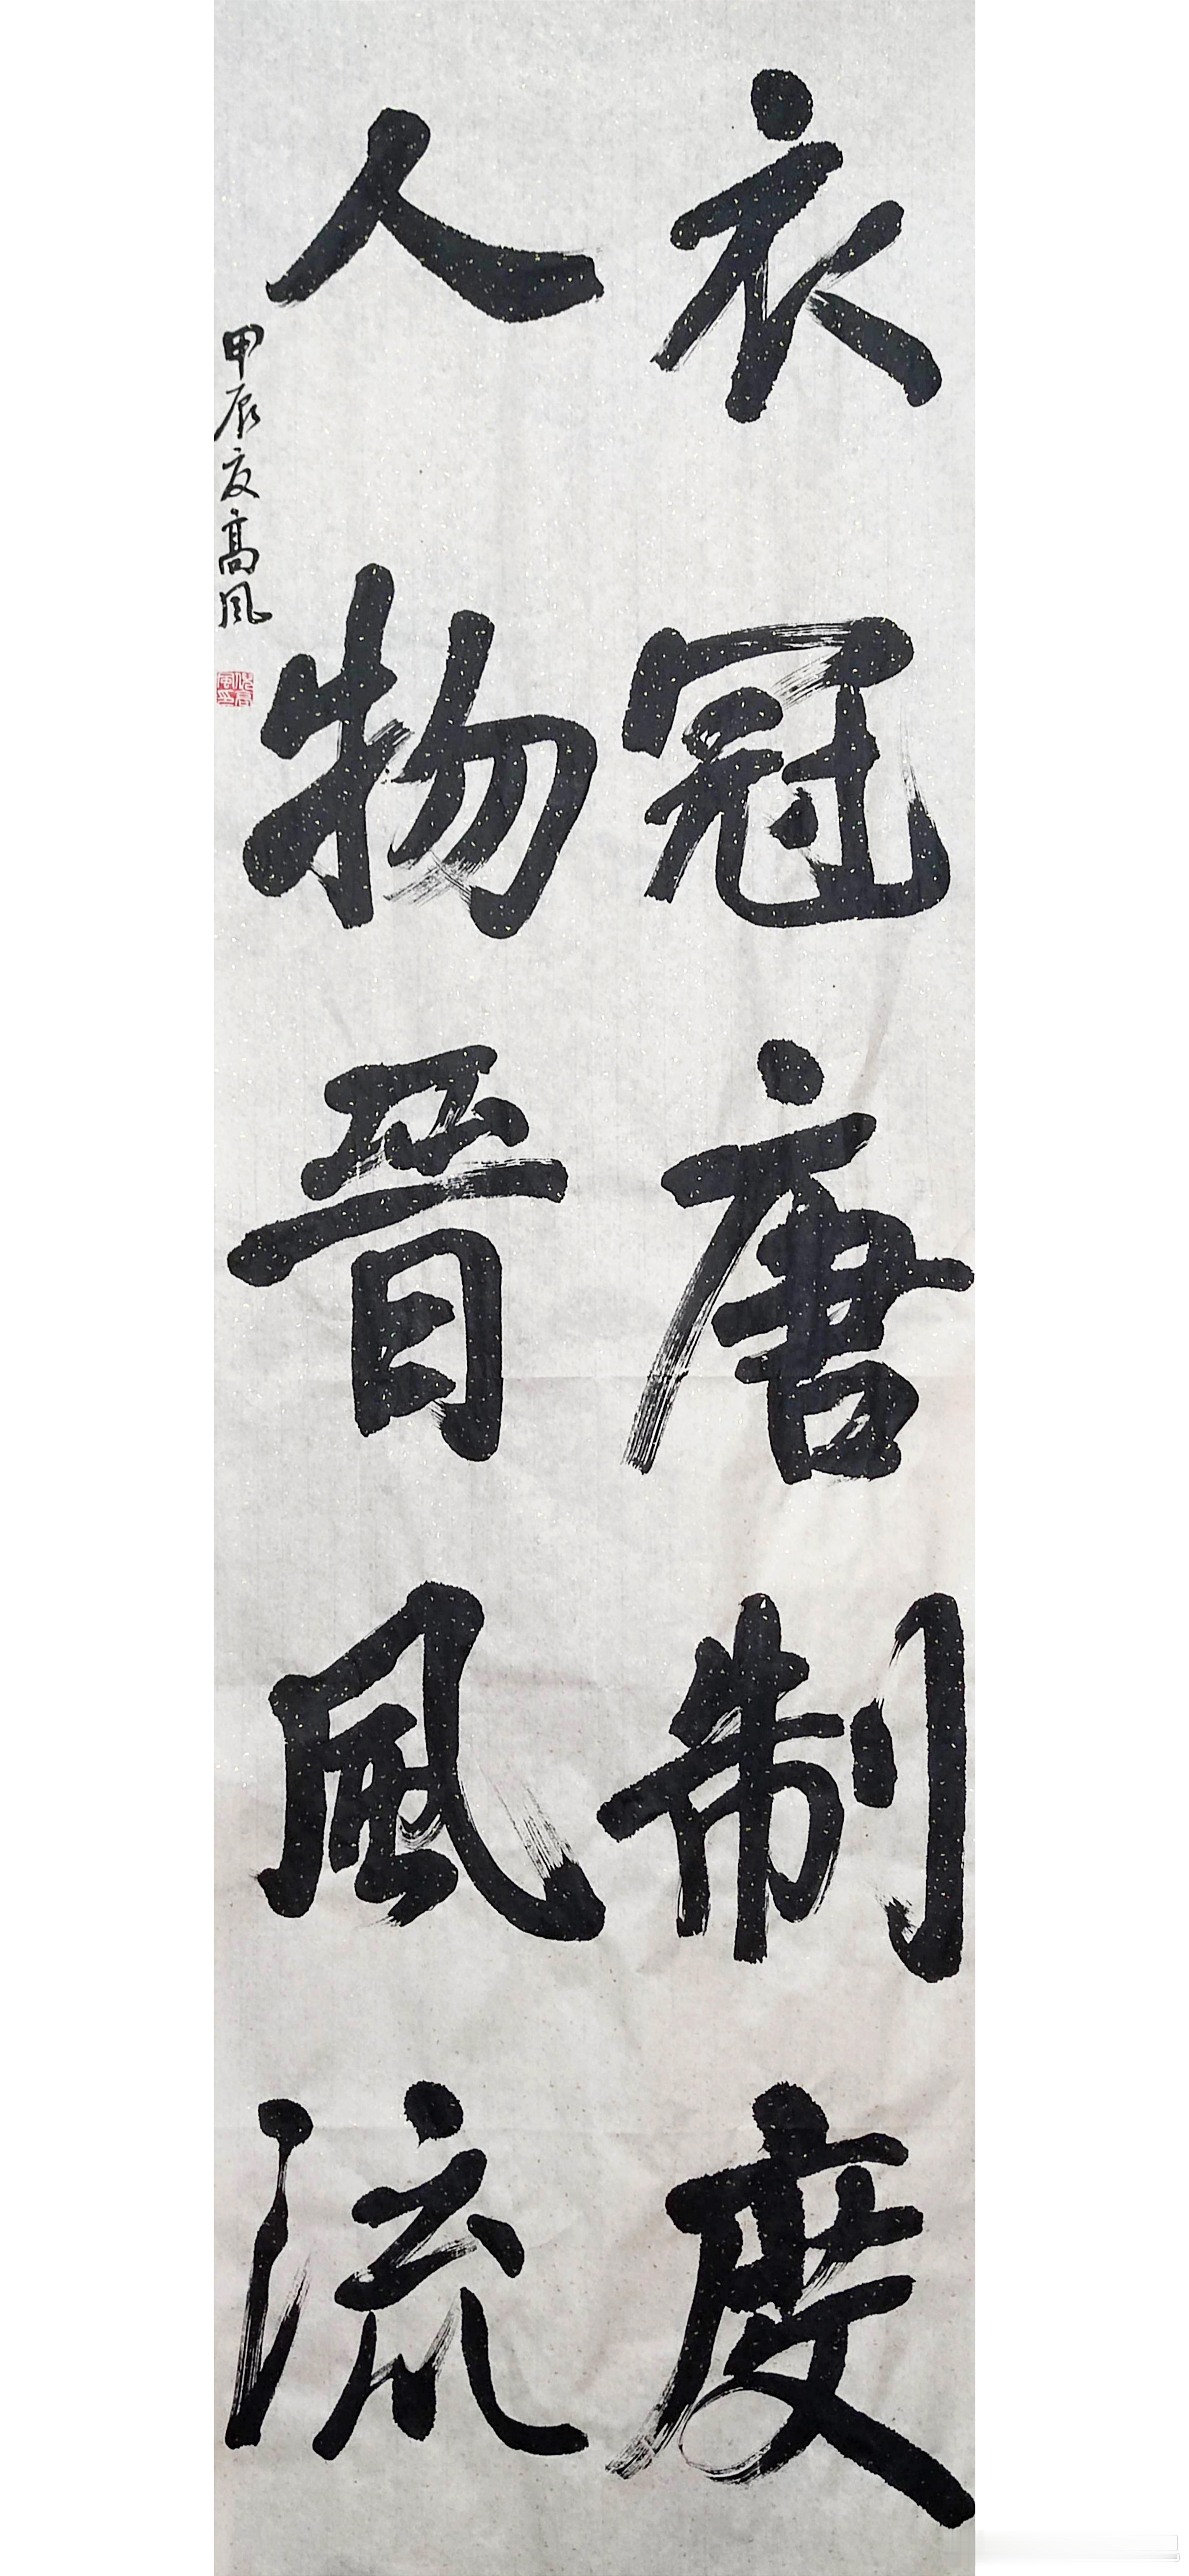 衣冠唐制度
人物晋風流
甲辰夏高風